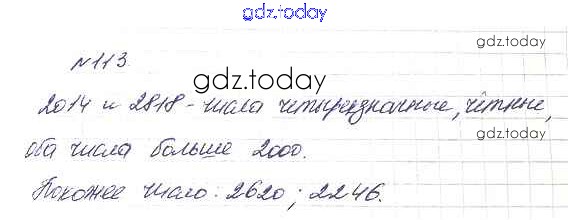 gdz.today
gdz.today
№113
gdz.today
2014 и 2818 - числа четырёхзначные, чётные,
gdz.today
оба числа больше 2000.
Похожее число: 2620; 2246.